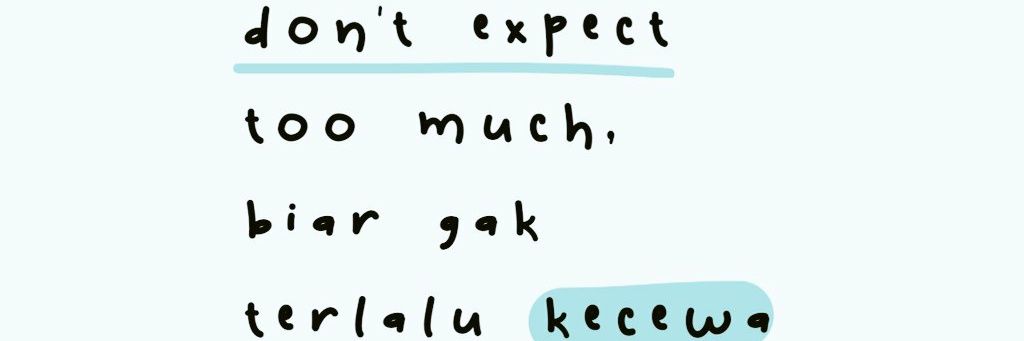 don't expect
too much,
biar gak
terlalu kecewa